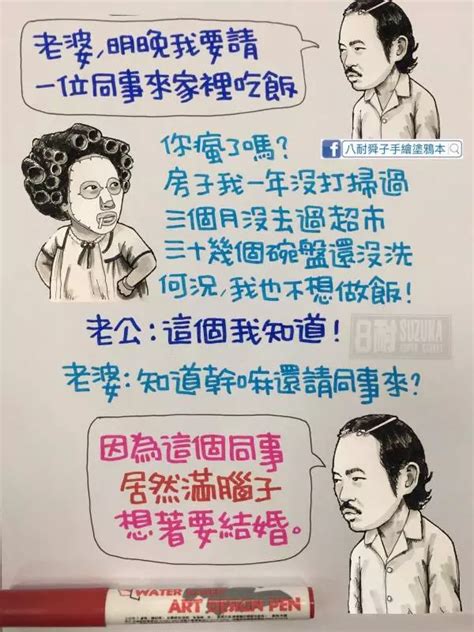 老婆,明晚我要請
一位同事來家裡吃飯
八耐舜子手繪塗鴉本
你瘋了嗎?
房子我一年沒打掃過
三個月沒去過超市
三十幾個碗盤還沒洗
何況,我也不想做飯!
老公:這個我知道!
8耐 SUZUKA
老婆:知道幹嘛還請同事來?
因為這個同事
居然滿腦子
想著要結婚。
WATER
ART PEN